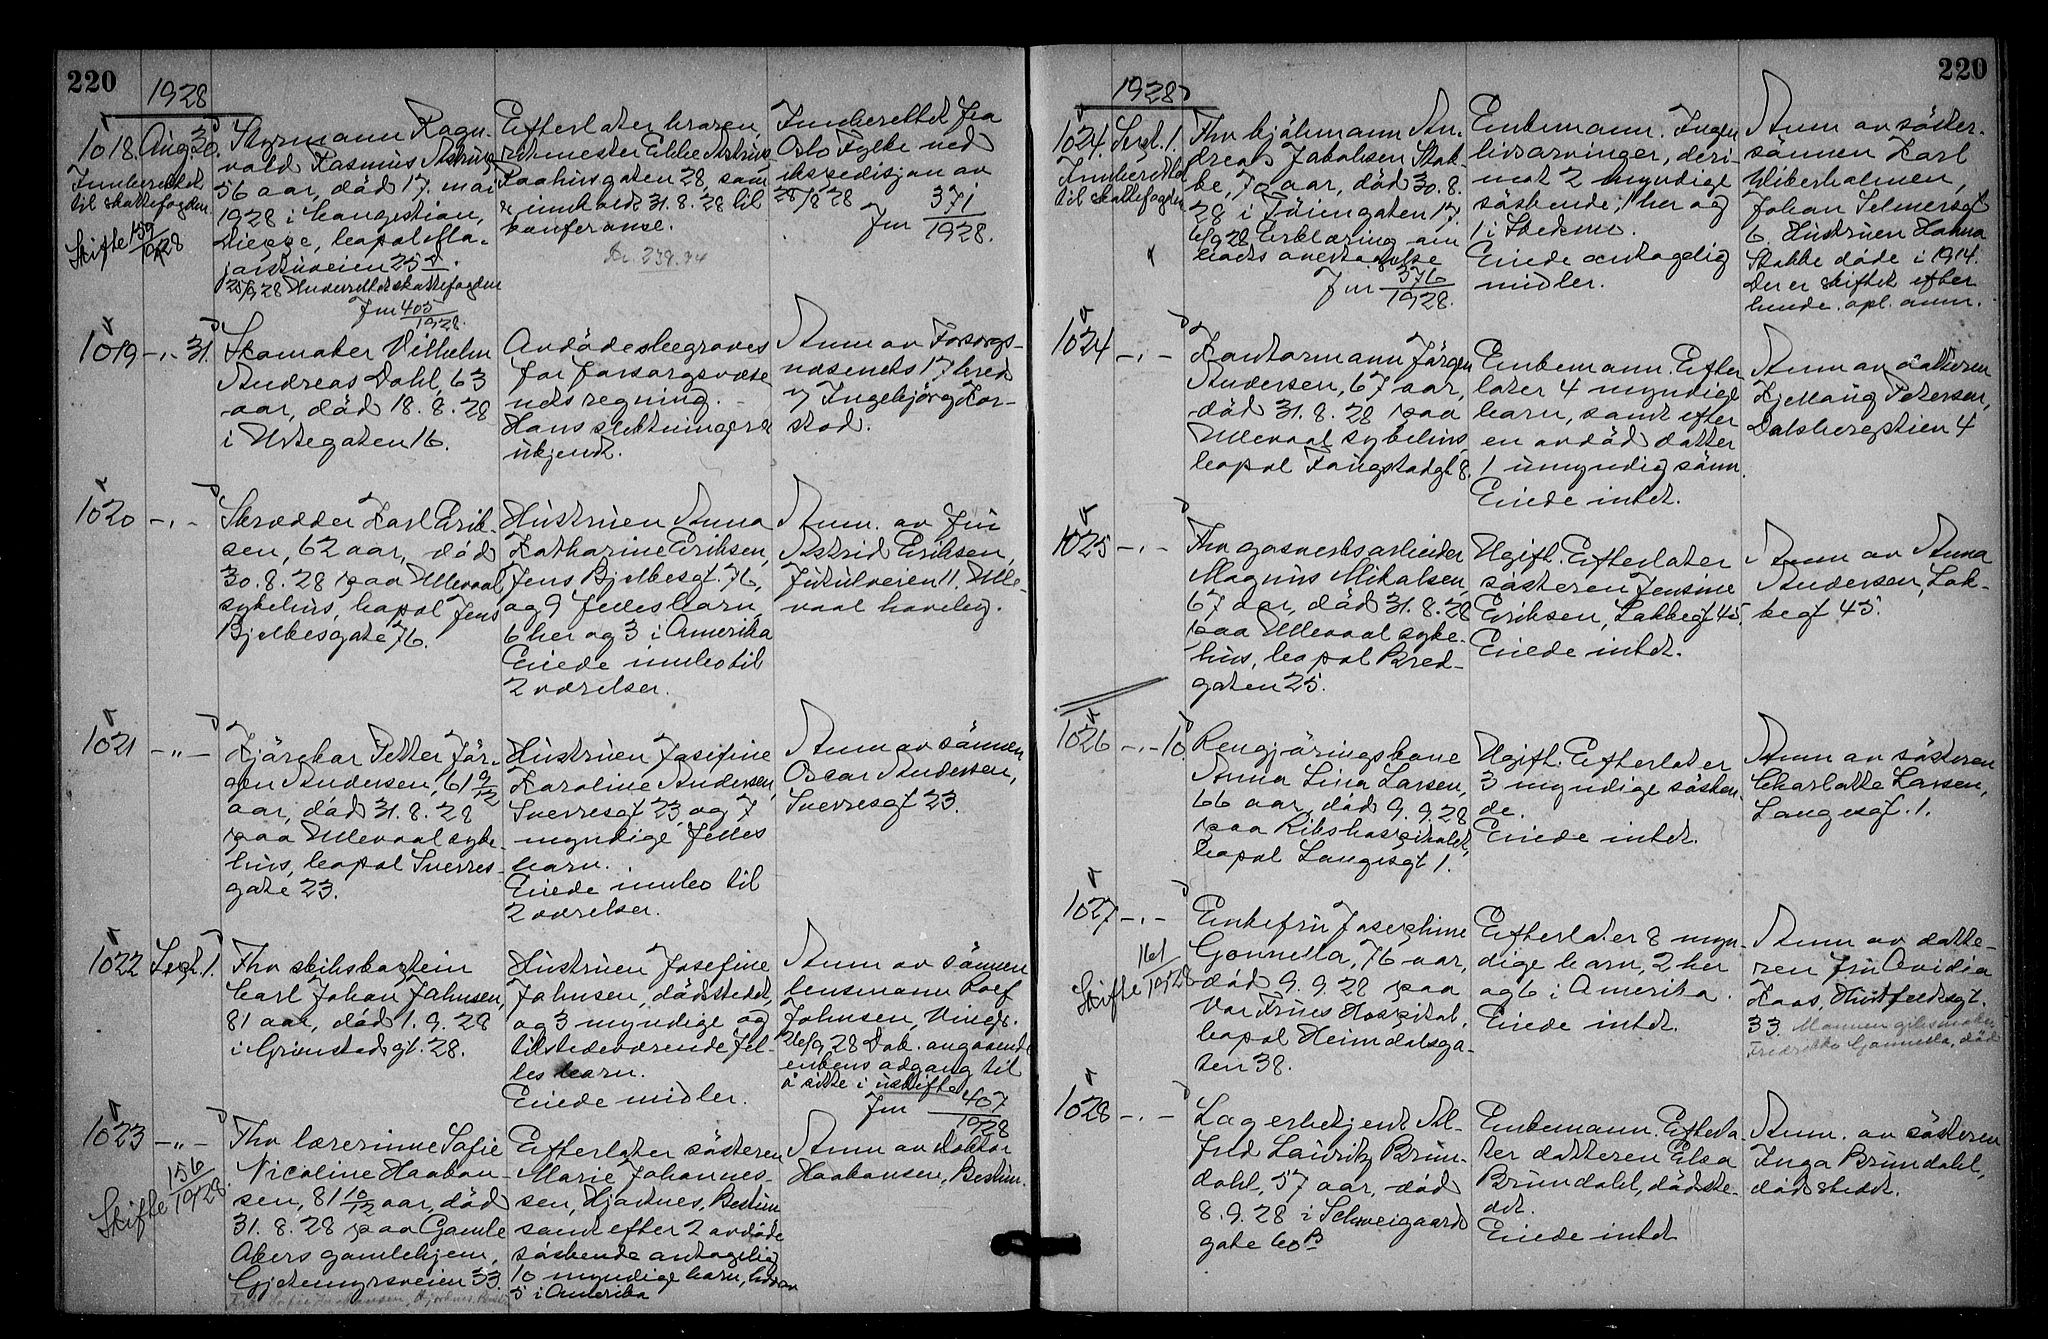 220
1928
1018. Aug. 30.
Innberettet
til skattefogden
Skifte 159/1928
Styrmann Ragn-
vald Rasmus
56 aar, död 17. mai
1928 i
Dieppe, bopæl
25
25/9 28 Underrettet skattefogden
Jnr 405/1928.
Efterlater broren,
28, som
er innkaldt 31.8.28 til
konferanse.
Innberettet fra
Oslo Fylke ved
ekspedisjon av
28/8 28
Jnr 371/1928.
1019 -,- 31.
Skomaker Vilhelm
Andreas Dahl, 63
aar, död 18.8.28
i Urtegaten 16.
Avdöde begraves
for forsorgsvæse
nets regning.
Hans slektninger er
ukjendt.
Anm av Forsorgs-
væsenets 17 kred
v/ Ingebjörg Kor-
stad.
1020 -,-
Skrædder Karl Erik-
sen, 62 aar, död
30.8.28 paa Ullevaal
sykehus, bopæl Jens
Bjelkesgate 76.
Hustruen Anna
Katharine Eriksen,
Jens Bjelkesgt. 76,
og 9 felles barn,
6 her og 3 i Amerika
Eiede innbo til
2 værelser.
Anm. av fru
Astrid Eriksen,
Jutulveien 11. Ulle-
vaal haveby.
1021 -"-
Kjörekar Petter Jör-
gen Andersen, 61 9/12
aar, död 31.8.28
paa Ullevaal syke-
hus, bopæl Sverres-
gate 23.
Hustruen Josefine
Karoline Andersen,
Sverresgt 23, og 7
myndige felles
barn.
Eiede innbo til
2 værelser.
Anm av sönnen
Oscar Andersen,
Sverresgt 23.
1022 Sept. 1.
Fhv skibskaptein
Carl Johan Johnsen,
81 aar, död 1.9.28
i Grimstadgt. 28.
Hustruen Josefine
Johnsen, dödsstedet,
og 3 myndige og
tilstedeværende fel-
les barn.
Eiede midler.
Anm av sönnen
lensmann Rolf
Johnsen,
26/9 28 Dok. angaaende
enkens adgang til
å sitte i uskifte
Jnr 407/1928
1023 -"-
Skifte 156/1928.
Fhv lærerinne Sofie
Nicoline Haakon-
sen, 81 10/12 aar, död
31.8.28 paa Gamle
Akers gamlehjem,
Gjetemyrsveien 33.
Efterlater søsteren
Marie Johannes-
sen, Hjortnes, Bestum
samt efter 2 avdöde
söskende antagelig
10 myndige barn, hvorav
5 i Amerika
Anm av doktor
Haakonsen, Bestum.
220
1928
1024. Sept. 1.
Innberettet
til skattefogden
Fhv kjölmann An-
dreas Jakobsen Stok-
ke, 79 aar, död 30.8.
28 i Töiengaten 17.
6/9 28 Erklæring om
bods overtagelse
Jnr 376/1928.
Enkemann. Ingen
livsarvinger, deri-
mot 2 myndige
söskende, 1 her og
1 i
Eiede antagelig
midler.
Anm av söster-
sönnen Karl
Wiberholmen,
Johan Selmersgt
6. Hustruen Hanna
Stokke döde i 1914.
Der er skiftet efter
hende. opl. anm.
1024 -,-
Kontormann Jörgen
Andersen, 67 aar,
död 31.8.28 paa
Ullevaal sykehus,
bopæl Fougstadgt 8.
Enkemann. Efter
later 4 myndige
barn, samt efter
en avdöd datter
1 umyndig sönn.
Eiede intet.
Anm av datteren
Kjellaug Petersen,
Dalsbergstien 4
1025 -,-
Fhv gasverksarbeider
Magnus Mikalsen,
67 aar, död 31.8.28
paa Ullevaal syke-
hus, bopæl Bred-
gaten 25.
Ugift. Efterlater
søsteren Jensine
Eriksen, Lakkegt 45.
Eiede intet.
Anm av Anna
Andersen, Lak-
kegt 45.
1026 -,- 10.
Rengjöringskone
Anna Lina Larsen,
66 aar, död 9.9.28
paa Rikshospitalet,
bopæl Langesgt 1.
Ugift. Efterlater
3 myndige sösken-
de.
Eiede intet.
Anm av søsteren
Charlotte Larsen,
Langesgt. 1.
1027 -,-
Skifte 161/1928
Enkefru Josephine
Gonnella, 76 aar,
död 9.9.28 paa
Vor Frues Hospital,
bopæl Heimdalsga-
ten 38.
Efterlater 8 myn-
dige barn, 2 her
og 6 i Amerika.
Eiede intet.
Anm av datte-
ren fru Ovidia
Kaas, Huitfeldtsgt.
33. Mannen gibsmaker
Fredrikko Gonnella, död
1028 -,-
Lagerbetjent Al-
fred Lauritz Brun-
dahl, 57 aar, död
8.9.28 i Schweigaards
gate 60 B
Enkemann. Efterla-
ter datteren Elsa
Brundahl, dödsste-
det.
Eiede intet
Anm. av søsteren
Inga Brundahl,
dödsstedet.